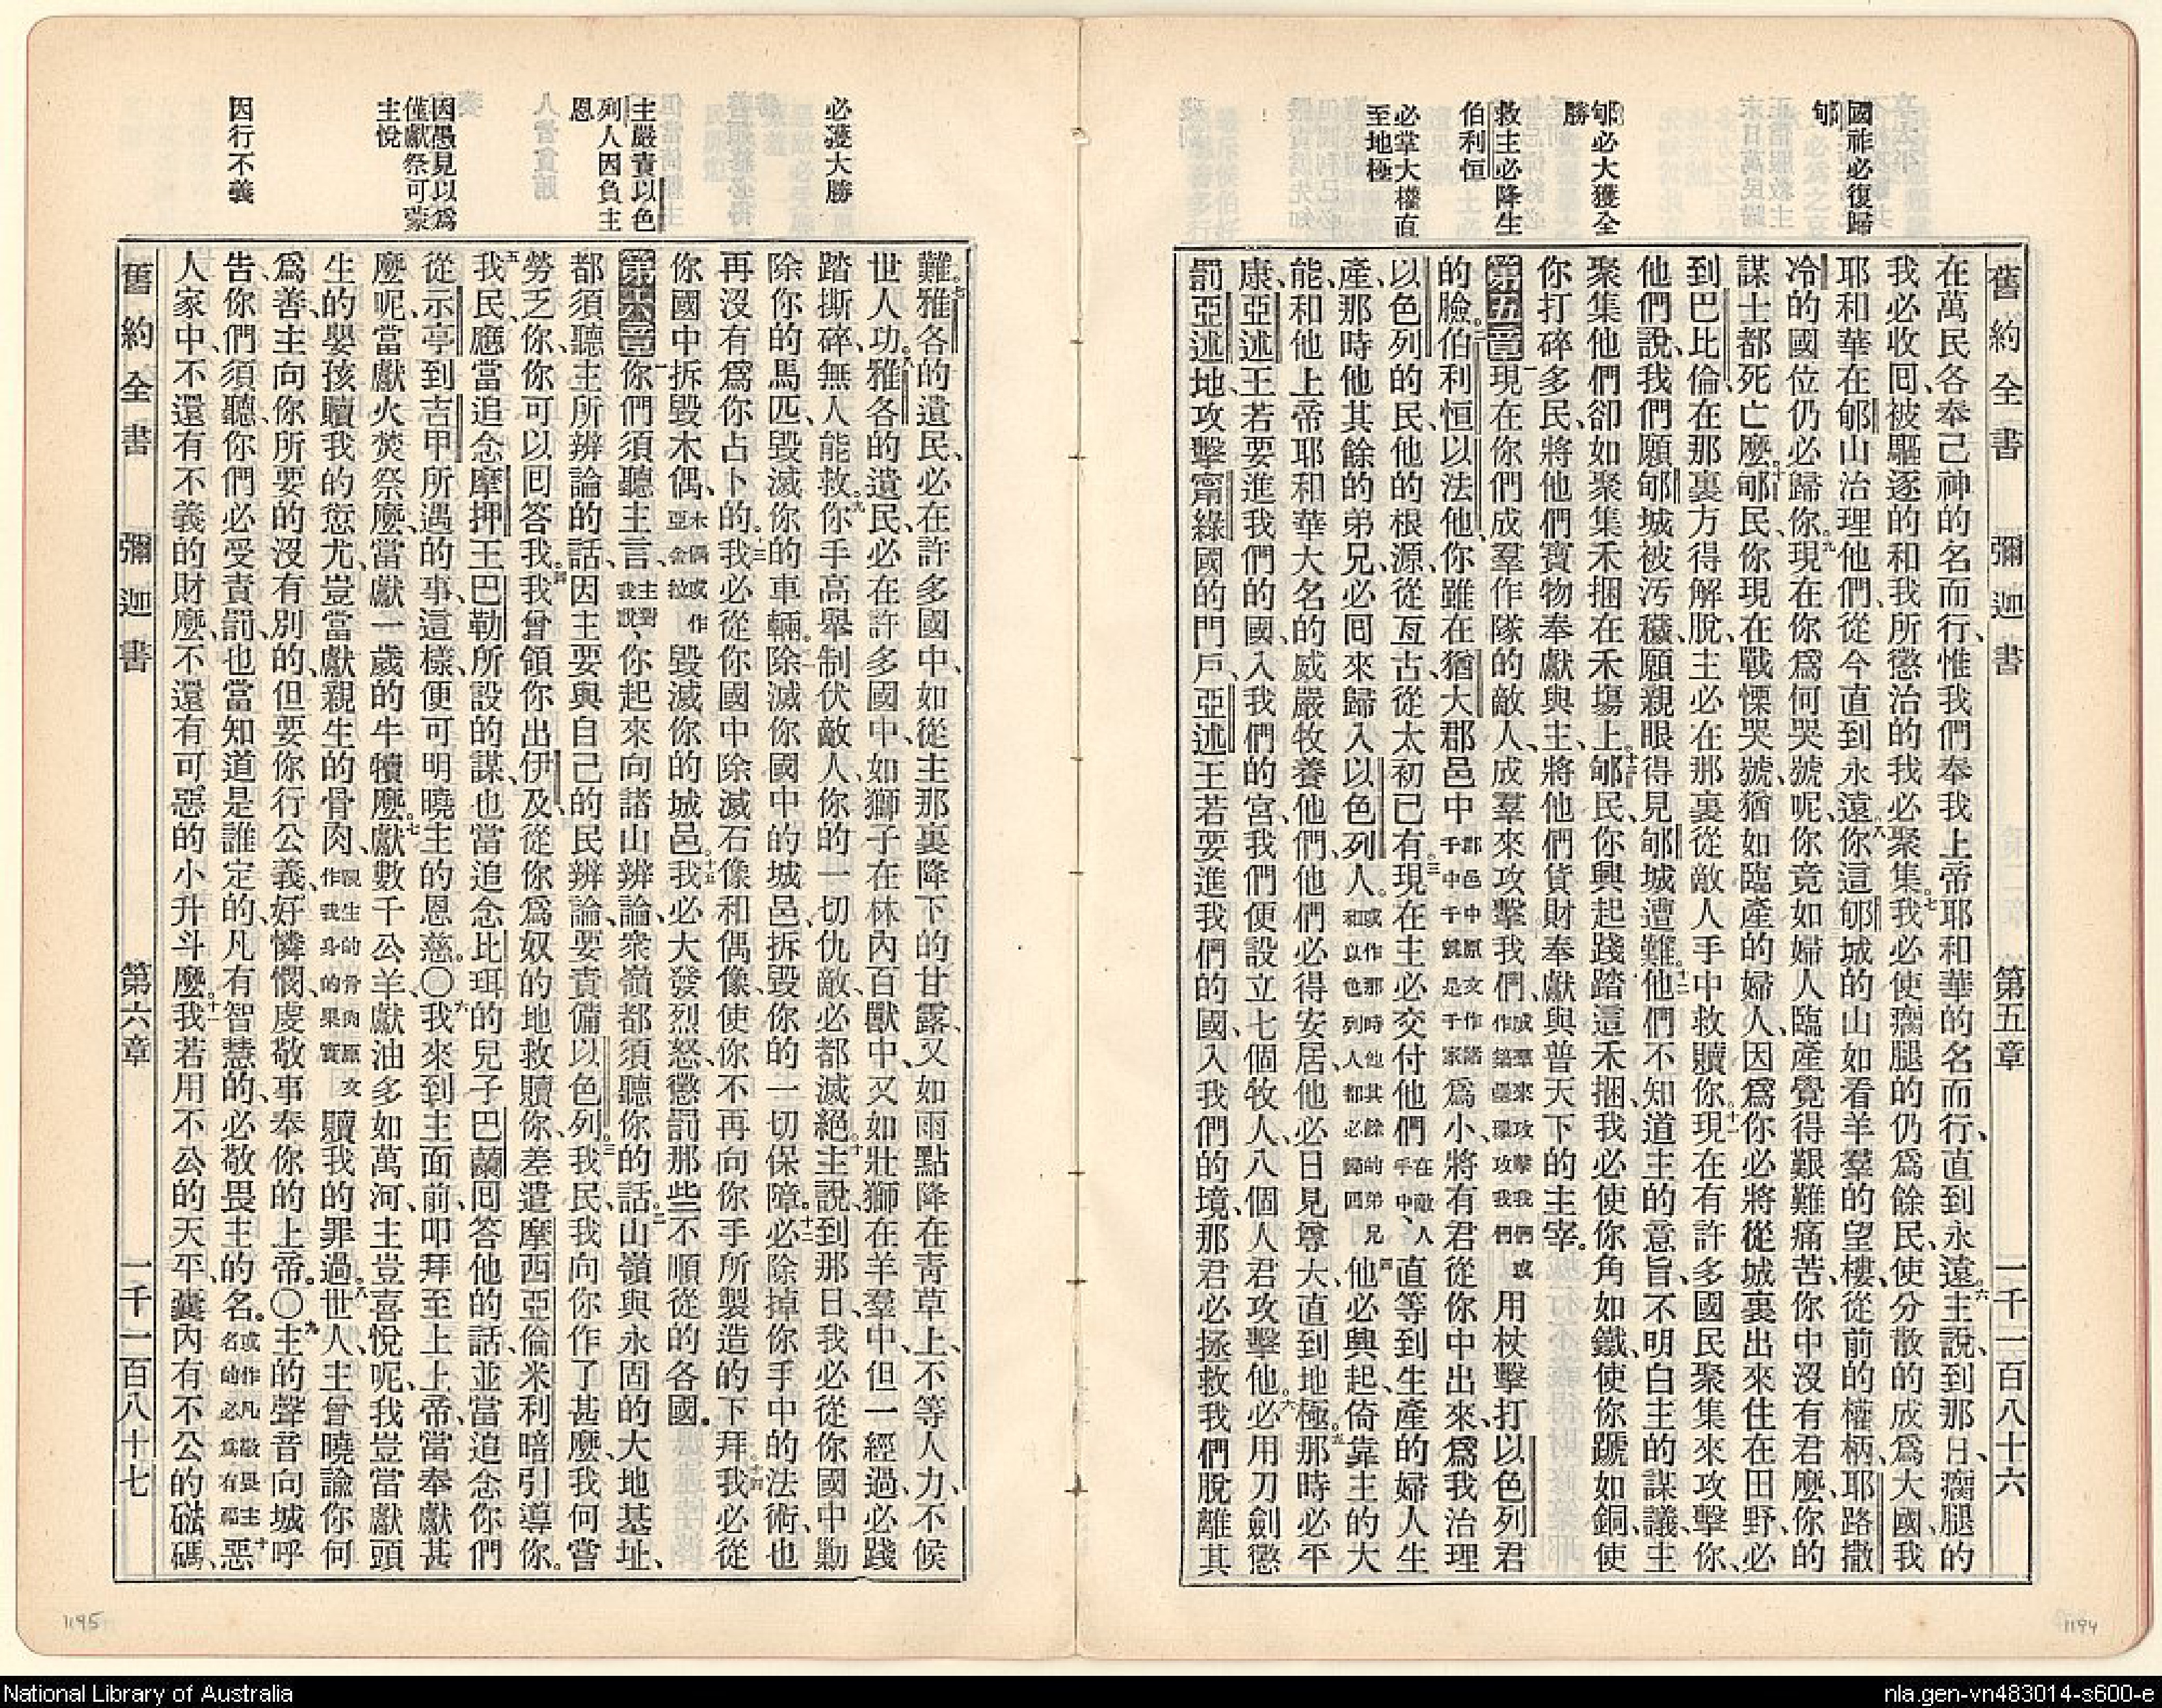 國祚必復歸
郇
郇必大獲全
勝
救主必降生
伯利恒
必掌大權直
至地極
舊約全書 彌迦書 第五章 一千一百八十六
在萬民各奉己神的名而行、惟我們奉我上帝耶和華的名而行、直到永遠。六主說、到那日、瘸腿的
我必收回、被驅逐的和我所懲治的我必聚集。七我必使瘸腿的仍爲餘民、使分散的成爲大國、我
耶和華在郇山治理他們、從今直到永遠。八你這郇城的山如看羊羣的望樓、從前的權柄、耶路撒
冷的國位仍必歸你。九現在你爲何哭號呢、你竟如婦人臨產覺得艱難痛苦、你中沒有君麼、你的
謀士都死亡麼。十郇民、你現在戰慄哭號、猶如臨產的婦人、因爲你必將從城裏出來住在田野、必
到巴比倫、在那裏方得解脫、主必在那裏從敵人手中救贖你。十一現在有許多國民聚集來攻擊你、
他們說、我們願郇城被汚穢、願親眼得見郇城遭難。十二他們不知道主的意旨、不明白主的謀議、主
聚集他們卻如聚集禾捆在禾塲上。十三郇民、你興起踐踏這禾捆、我必使你角如鐵、使你蹏如銅、使
你打碎多民、將他們寶物奉獻與主、將他們貨財奉獻與普天下的主宰。
第五章 一現在你們成羣作隊的敵人、成羣來攻擊我們、成羣來攻擊我們或作築壘環攻我們 用杖擊打以色列君
的臉。二伯利恒以法他、你雖在猶大郡邑中郡邑中原文作諸千中千就是千家爲小、將有君從你中出來、爲我治理
以色列的民、他的根源、從亙古、從太初已有。三現在主必交付他們在敵人手中、直等到生產的婦人生
產、那時他其餘的弟兄、必回來歸入以色列人。或作那時他其餘的弟兄和以色列人都必歸回四他必興起、倚靠主的大
能、和他上帝耶和華大名的威嚴牧養他們、他們必得安居、他必日見尊大、直到地極。五那時必平
康、亞述王若要進我們的國、入我們的宮、我們便設立七個牧人、八個人君攻擊他。六必用刀劍懲
罰亞述地、攻擊甯綠國的門戶、亞述王若要進我們的國、入我們的境、那君必拯救我們脫離其
必獲大勝
主嚴責以色
列人因負主
恩
因愚見以爲
僅獻祭可蒙
主悅
因行不義
難。七雅各的遺民、必在許多國中、如從主那裏降下的甘露、又如雨點降在靑草上、不等人力、不候
世人功。八雅各的遺民、必在許多國中、如獅子在林內百獸中、又如壯獅在羊羣中、但一經過、必踐
踏撕碎、無人能救。九你手高舉制伏敵人、你的一切仇敵、必都滅絕。十主說、到那日、我必從你國中勦
除你的馬匹、毀滅你的車輛。十一除滅你國中的城邑、拆毀你的一切保障。十二必除掉你手中的法術、也
再沒有爲你占卜的。十三我必從你國中除滅石像和偶像、使你不再向你手所製造的下拜。十四我必從
你國中拆毀木偶、木偶或作亞舍拉毀滅你的城邑。十五我必大發烈怒、懲罰那些不順從的各國。
第六章 一你們須聽主言、主對我說、你起來向諸山辨論、衆嶺都須聽你的話。二山嶺與永固的大地基址、
都須聽主所辨論的話、因主要與自己的民辨論、要責備以色列。三我民、我向你作了甚麼、我何嘗
勞乏你、你可以回答我。四我曾領你出伊及、從你爲奴的地救贖你、差遣摩西亞倫米利暗引導你。
五我民、應當追念摩押王巴勒所設的謀、也當追念比珥的兒子巴蘭回答他的話、並當追念你們
從示亭到吉甲所遇的事、這樣、便可明曉主的恩慈。○六我來到主面前、叩拜至上上帝、當奉獻甚
麼呢、當獻火焚祭麼、當獻一歲的牛犢麼。七獻數千公羊、獻油多如萬河、主豈喜悅呢、我豈當獻頭
生的嬰孩贖我的愆尤、豈當獻親生的骨肉、親生的骨肉原文作我身的果實贖我的罪過。八世人、主曾曉諭你何
爲善、主向你所要的沒有別的、但要你行公義、好憐憫、虔敬事奉你的上帝。○九主的聲音向城呼
告、你們須聽、你們必受責罰、也當知道是誰定的、凡有智慧的、必敬畏主的名。或作凡敬畏主名的必爲有福十惡
人家中、不還有不義的財麼、不還有可惡的小升斗麼。十一我若用不公的天平、囊內有不公的磅碼、
舊約全書 彌迦書 第六章 一千一百八十七
1195
1194
National Library of Australia
nla.gen-vn483014-s600-e